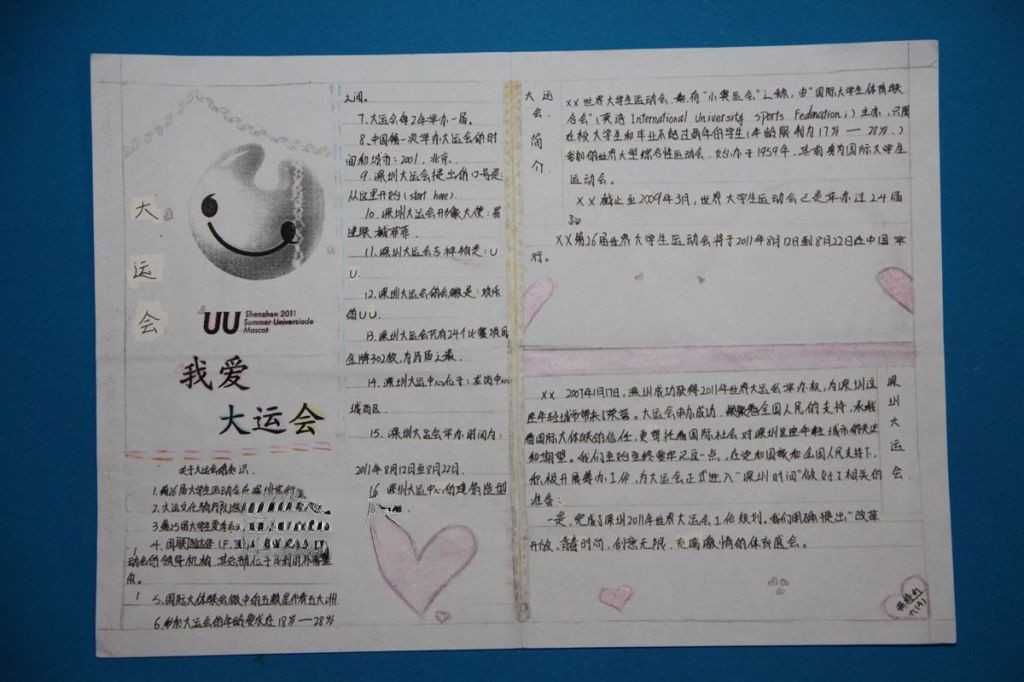 大
运
会
UU Shenzhen 2011
Summer Universiade
Mascot
我爱
大运会
关于大运会的知识.
1.第26届大学生运动会在深圳举行
2.大运文化
3.第25届大学生
4.国
动会的领导机构,其总部位于比利时布鲁塞
尔。
5.国际大体联会徽中的五颗星代表五大洲.
6.参加大运会的年龄要求在18岁—28岁
之间。
7.大运会每2年举办一届。
8.中国第一次举办大运会的时
间和城市:2001,北京.
9.深圳大运会提出的口号是:
从这里开始(start here).
10.深圳大运会形象大使:易
建联.
11.深圳大运会吉祥物是:U
U.
12.深圳大运会的会徽是:欢乐
的UU.
13.深圳大运会共有24个比赛项目
金牌302枚,为历届之最.
14.深圳大运中心位于:龙岗中心
城西区.
15.深圳大运会举办时间为:
2011年8月12日至8月22日.
16.深圳大运中心的建筑造型
大运会简介
XX世界大学生运动会,素有“小奥运会”之称,由“国际大学生体育联
合会”(英语International University Sports Federation;)主办,只限
在校大学生和毕业不超过两年的学生(年龄限制为17岁—28岁,)
参加的世界大型综合性运动会.始办于1959年,其前身为国际大学生
运动会。
XX截止至2009年3月,世界大学生运动会已是举办过24届
了
XX第26届世界大学生运动会将于2011年8月12日到8月22日在中国举
行。
深圳大运会
XX 2007年1月17日,深圳成功获得2011年世界大运会举办权,为深圳这
座年轻城市带来了荣誉。大运会申办成功,凝聚着全国人民的支持,承载
着国际大体联的信任,更寄托着国际社会对深圳这座年轻城市的关注
和期望。我们至始至终要牢记这一点,在党和国家和全国人民支持下,
积极开展筹办工作,为大运会正式进入“深圳时间”做好了相关的
准备:
一是,完成了深圳2011年世界大运会工作规划。我们明确提出“改革
开放、青春时尚、创意无限、充满激情的体育盛会。
六(4)